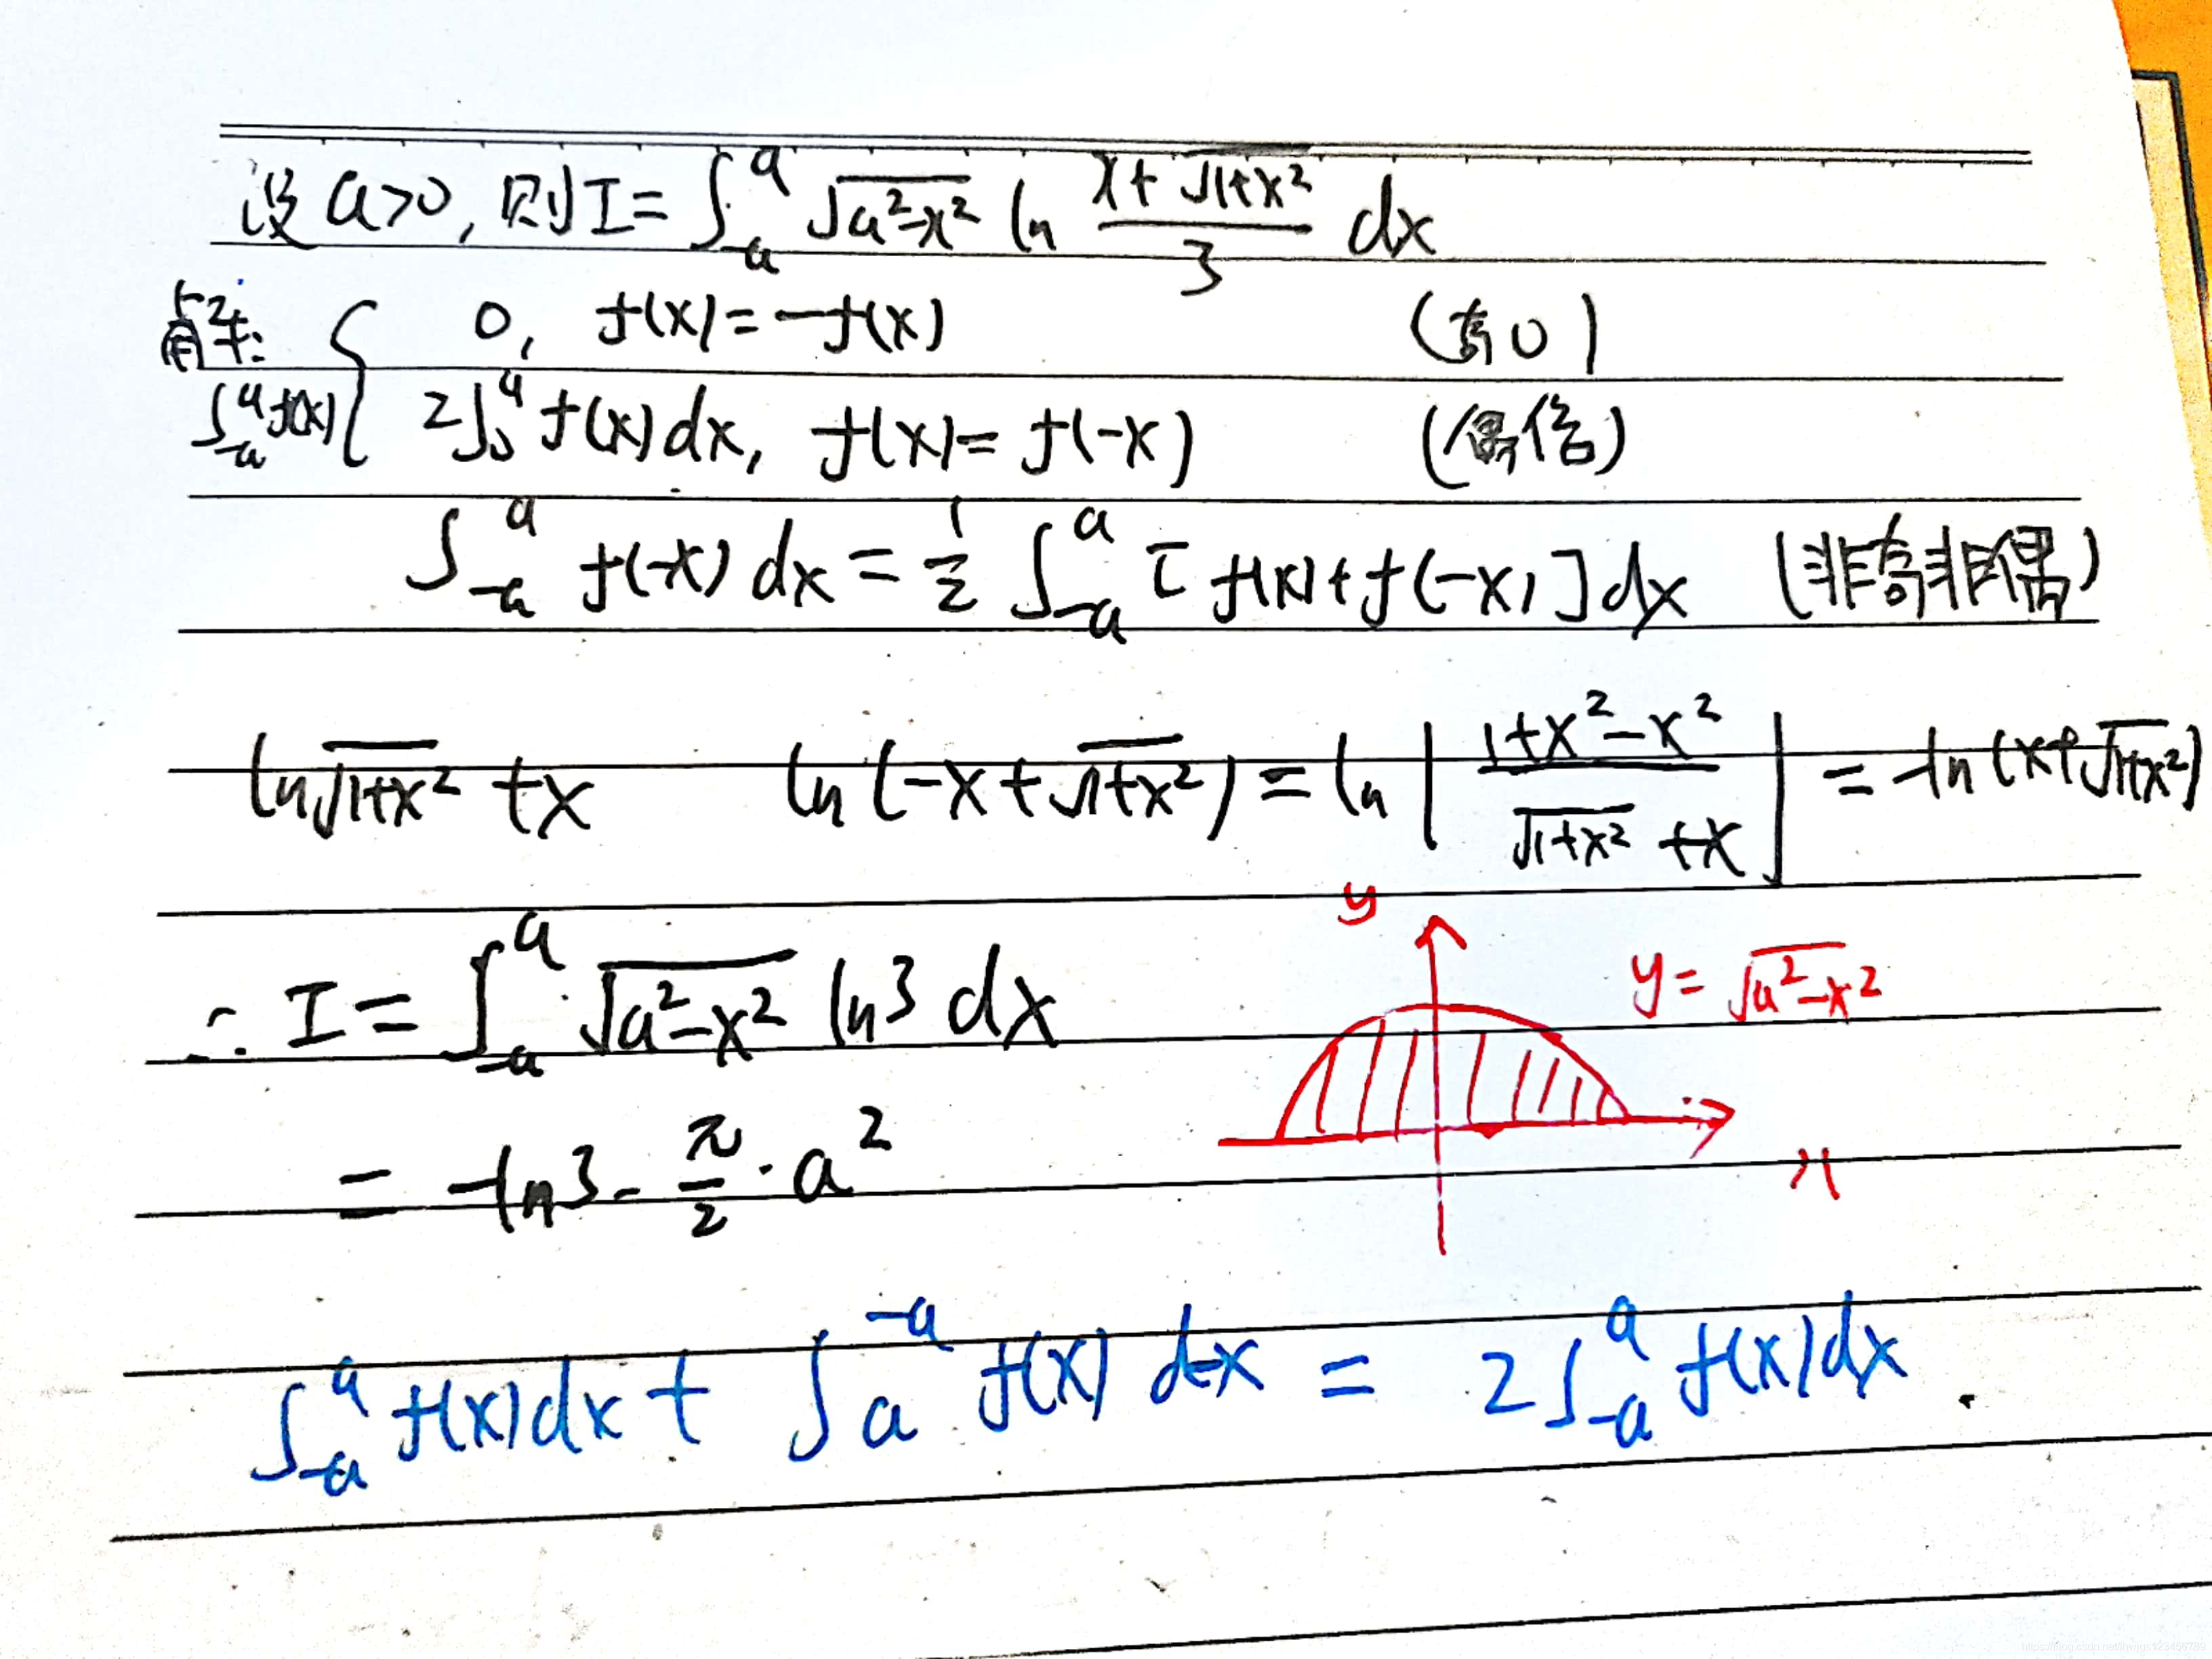 设 a>0, 则 I = ∫_{-a}^{a} √(a²-x²) ln (x+√(1+x²))/3 dx
解: 0, f(x) = -f(x) (奇0)
∫_{-a}^{a} f(x) { 2∫_0^a f(x) dx, f(x) = f(-x) (偶倍)
∫_{-a}^{a} f(-x) dx = 1/2 ∫_{-a}^{a} [f(x)+f(-x)] dx (非奇非偶)
ln √(1+x²) + x ln(-x+√(1+x²)) = ln | (1+x²-x²)/(√(1+x²)+x) | = -ln(x+√(1+x²))
y
∴ I = ∫_{-a}^{a} √(a²-x²) ln3 dx y = √(a²-x²)
= -ln3 · π/2 · a² x
∫_{-a}^{a} f(x) dx + ∫_a^{-a} f(x) d-x = 2∫_{-a}^{a} f(x) dx.